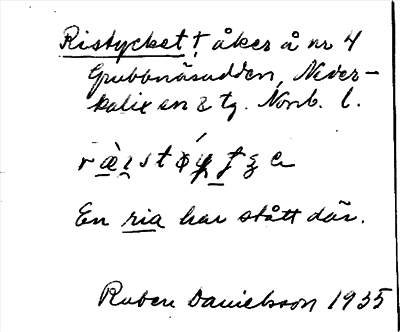 Ristycket † åker å nr 4
Grubbnäsudden, Neder-
kalix sn & tg. Norrb. l.
En ria har stått där.
Ruben Danielsson 1935